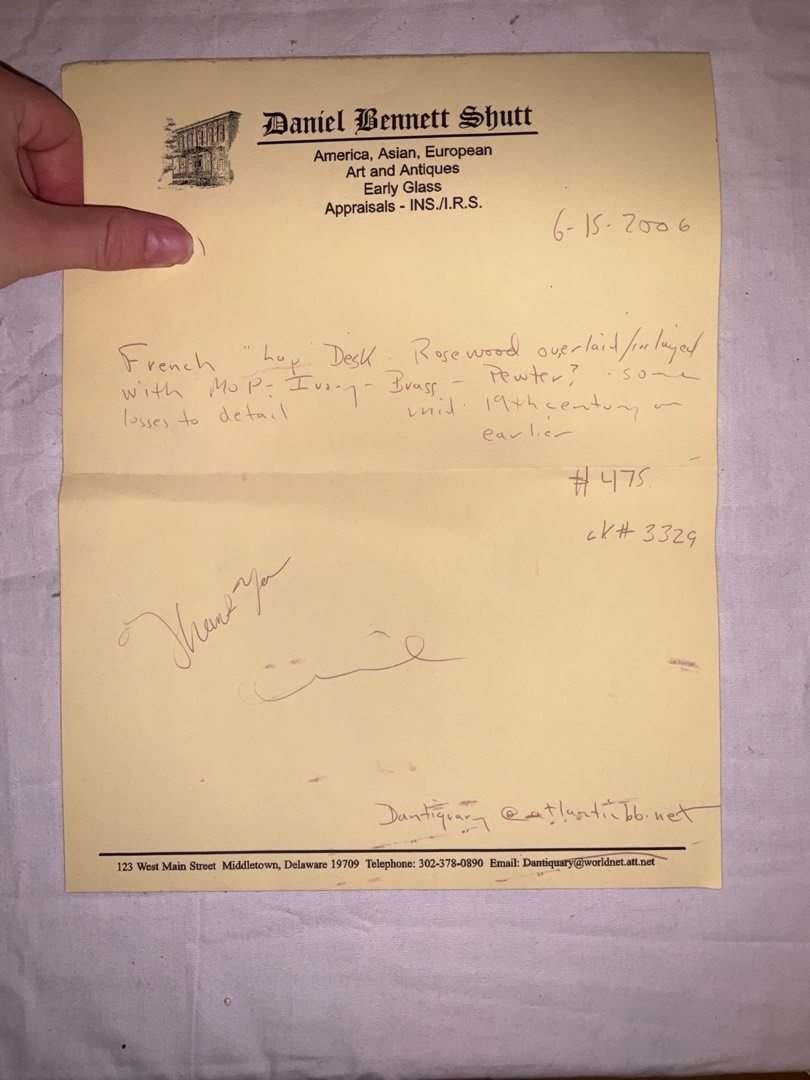 Daniel Bennett Shutt
America, Asian, European
Art and Antiques
Early Glass
Appraisals - INS./I.R.S.
6-15-2006
French "Lap" Desk Rosewood overlaid/inlayed
with MOP - Ivory - Brass - Pewter? . some
losses to detail mid. 19th century or
earlier
# 475.
ck# 3329
Thank You
Dantiquary @ atlanticbb.net
123 West Main Street Middletown, Delaware 19709 Telephone: 302-378-0890 Email: Dantiquary@worldnet.att.net